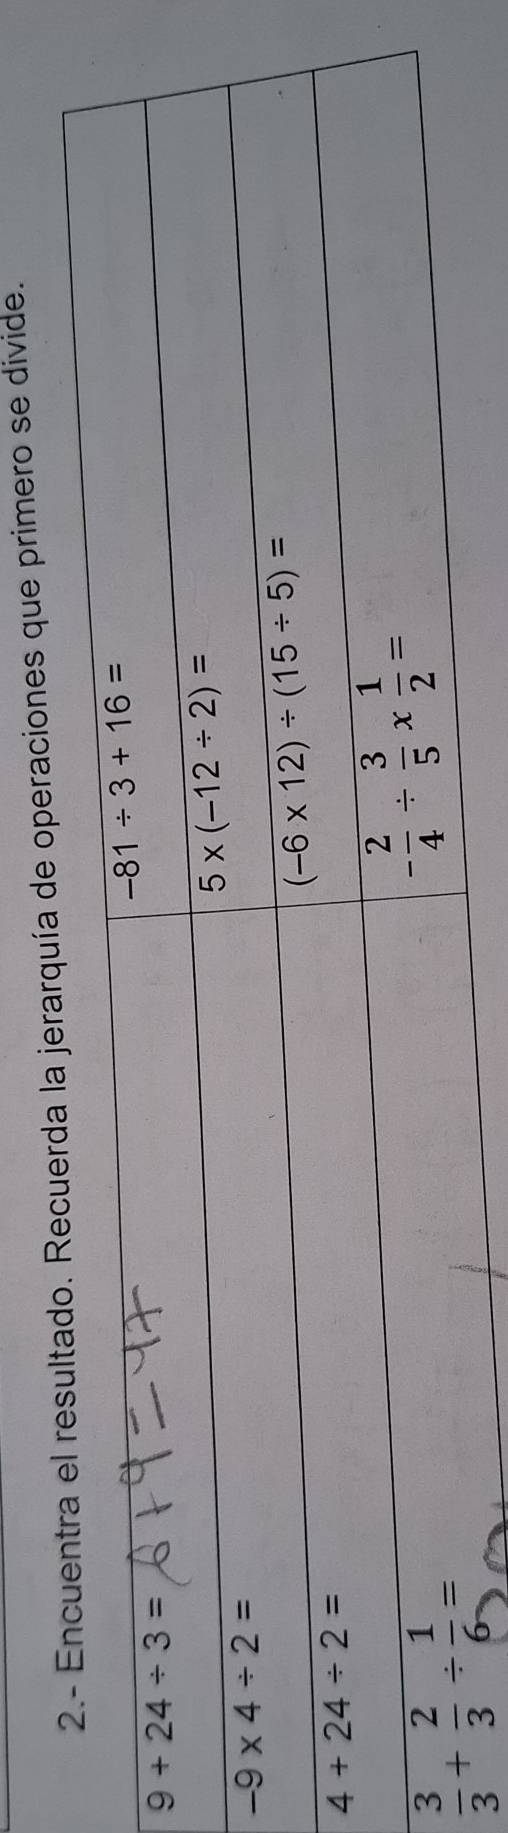 2.- Encuentra el resultado. Recuerda la jerarquía de operaciones que primero se divide.
9 + 24 ÷ 3 = 8+9=17
−81 ÷ 3 + 16 =
−9 x 4 ÷ 2 =
5 x (−12 ÷ 2) =
4 + 24 ÷ 2 =
(−6 x 12) ÷ (15 ÷ 5) =
3/3 + 2/3 ÷ 1/6 =
−2/4 ÷ 3/5 x 1/2 =